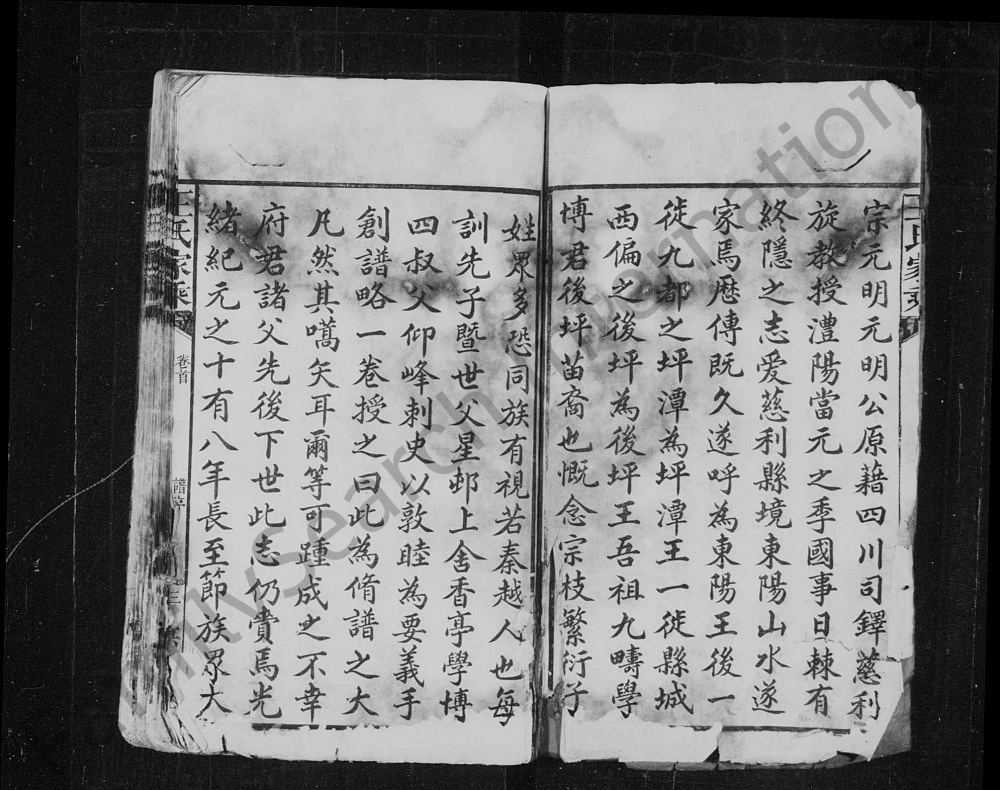 宗元明元明公原藉四川司鐸慈利
旋教授澧陽當元之季國事日棘有
終隱之志爱慈利縣境東陽山水遂
家焉歷傳既久遂呼為東陽王後一
徙九都之坪潭為坪潭王一徙縣城
西偏之後坪為後坪王吾祖九疇學
博君後坪苗裔也慨念宗枝繁衍子
姓眾多恐同族有視若秦越人也每
訓先子暨世父星邨上舍香亭學博
四叔父仰峰刺史以敦睦為要義手
創譜略一卷授之曰此為脩譜之大
凡然其嚆矢耳爾等可踵成之不幸
府君諸父先後下世此志仍賫焉光
緒紀元之十有八年長至節族眾大
王氏家乘
卷首
三
王氏家乘
MKSearch Information